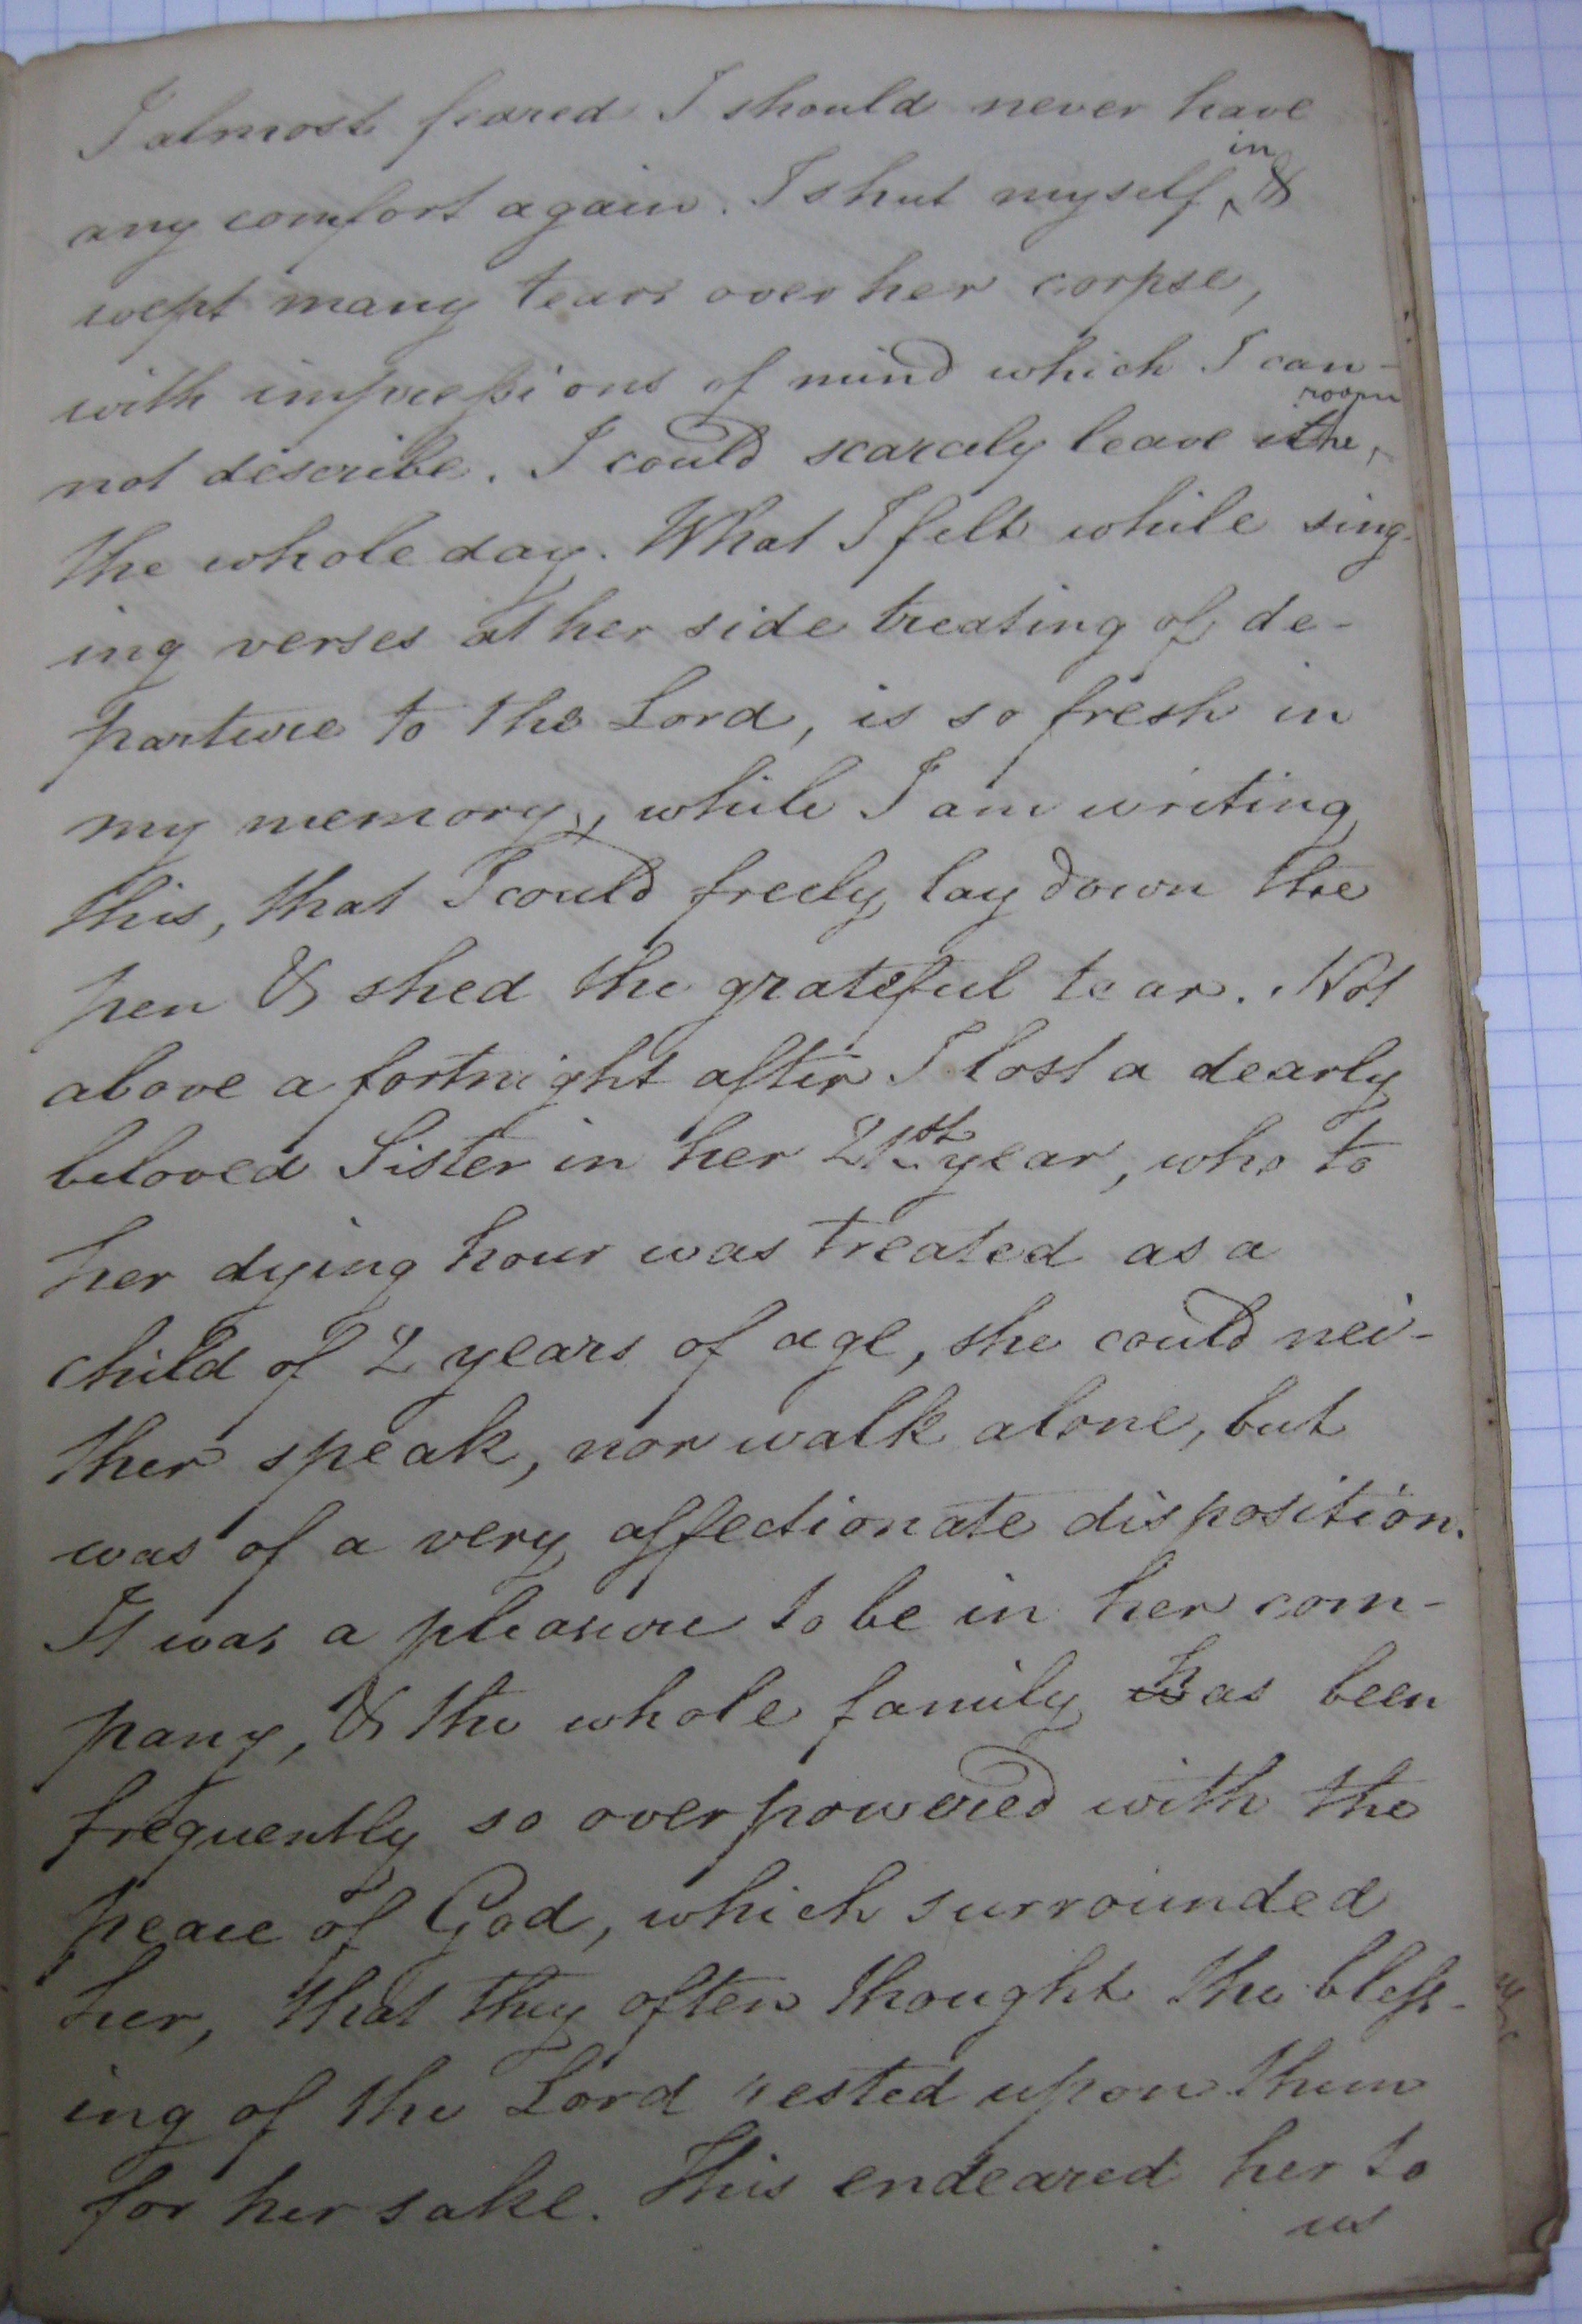 I almost feared I should never have
any comfort again. I shut myself in &
wept many tears over her corpse,
with impressions of mind which I can-
not describe. I could scarcely leave the room
the whole day. What I felt while sing-
ing verses at her side treating of de-
parture to the Lord, is so fresh in
my memory, while I am writing
this, that I could freely lay down the
pen & shed the grateful tear. Not
above a fortnight after I lost a dearly
beloved Sister in her 21st year, who to
her dying hour was treated as a
child of 2 years of age, she could nei-
ther speak, nor walk alone, but
was of a very affectionate disposition.
It was a pleasure to be in her com-
pany, & the whole family has been
frequently so overpowered with the
peace of God, which surrounded
her, that they often thought the bless-
ing of the Lord rested upon them
for her sake. This endeared her to
us